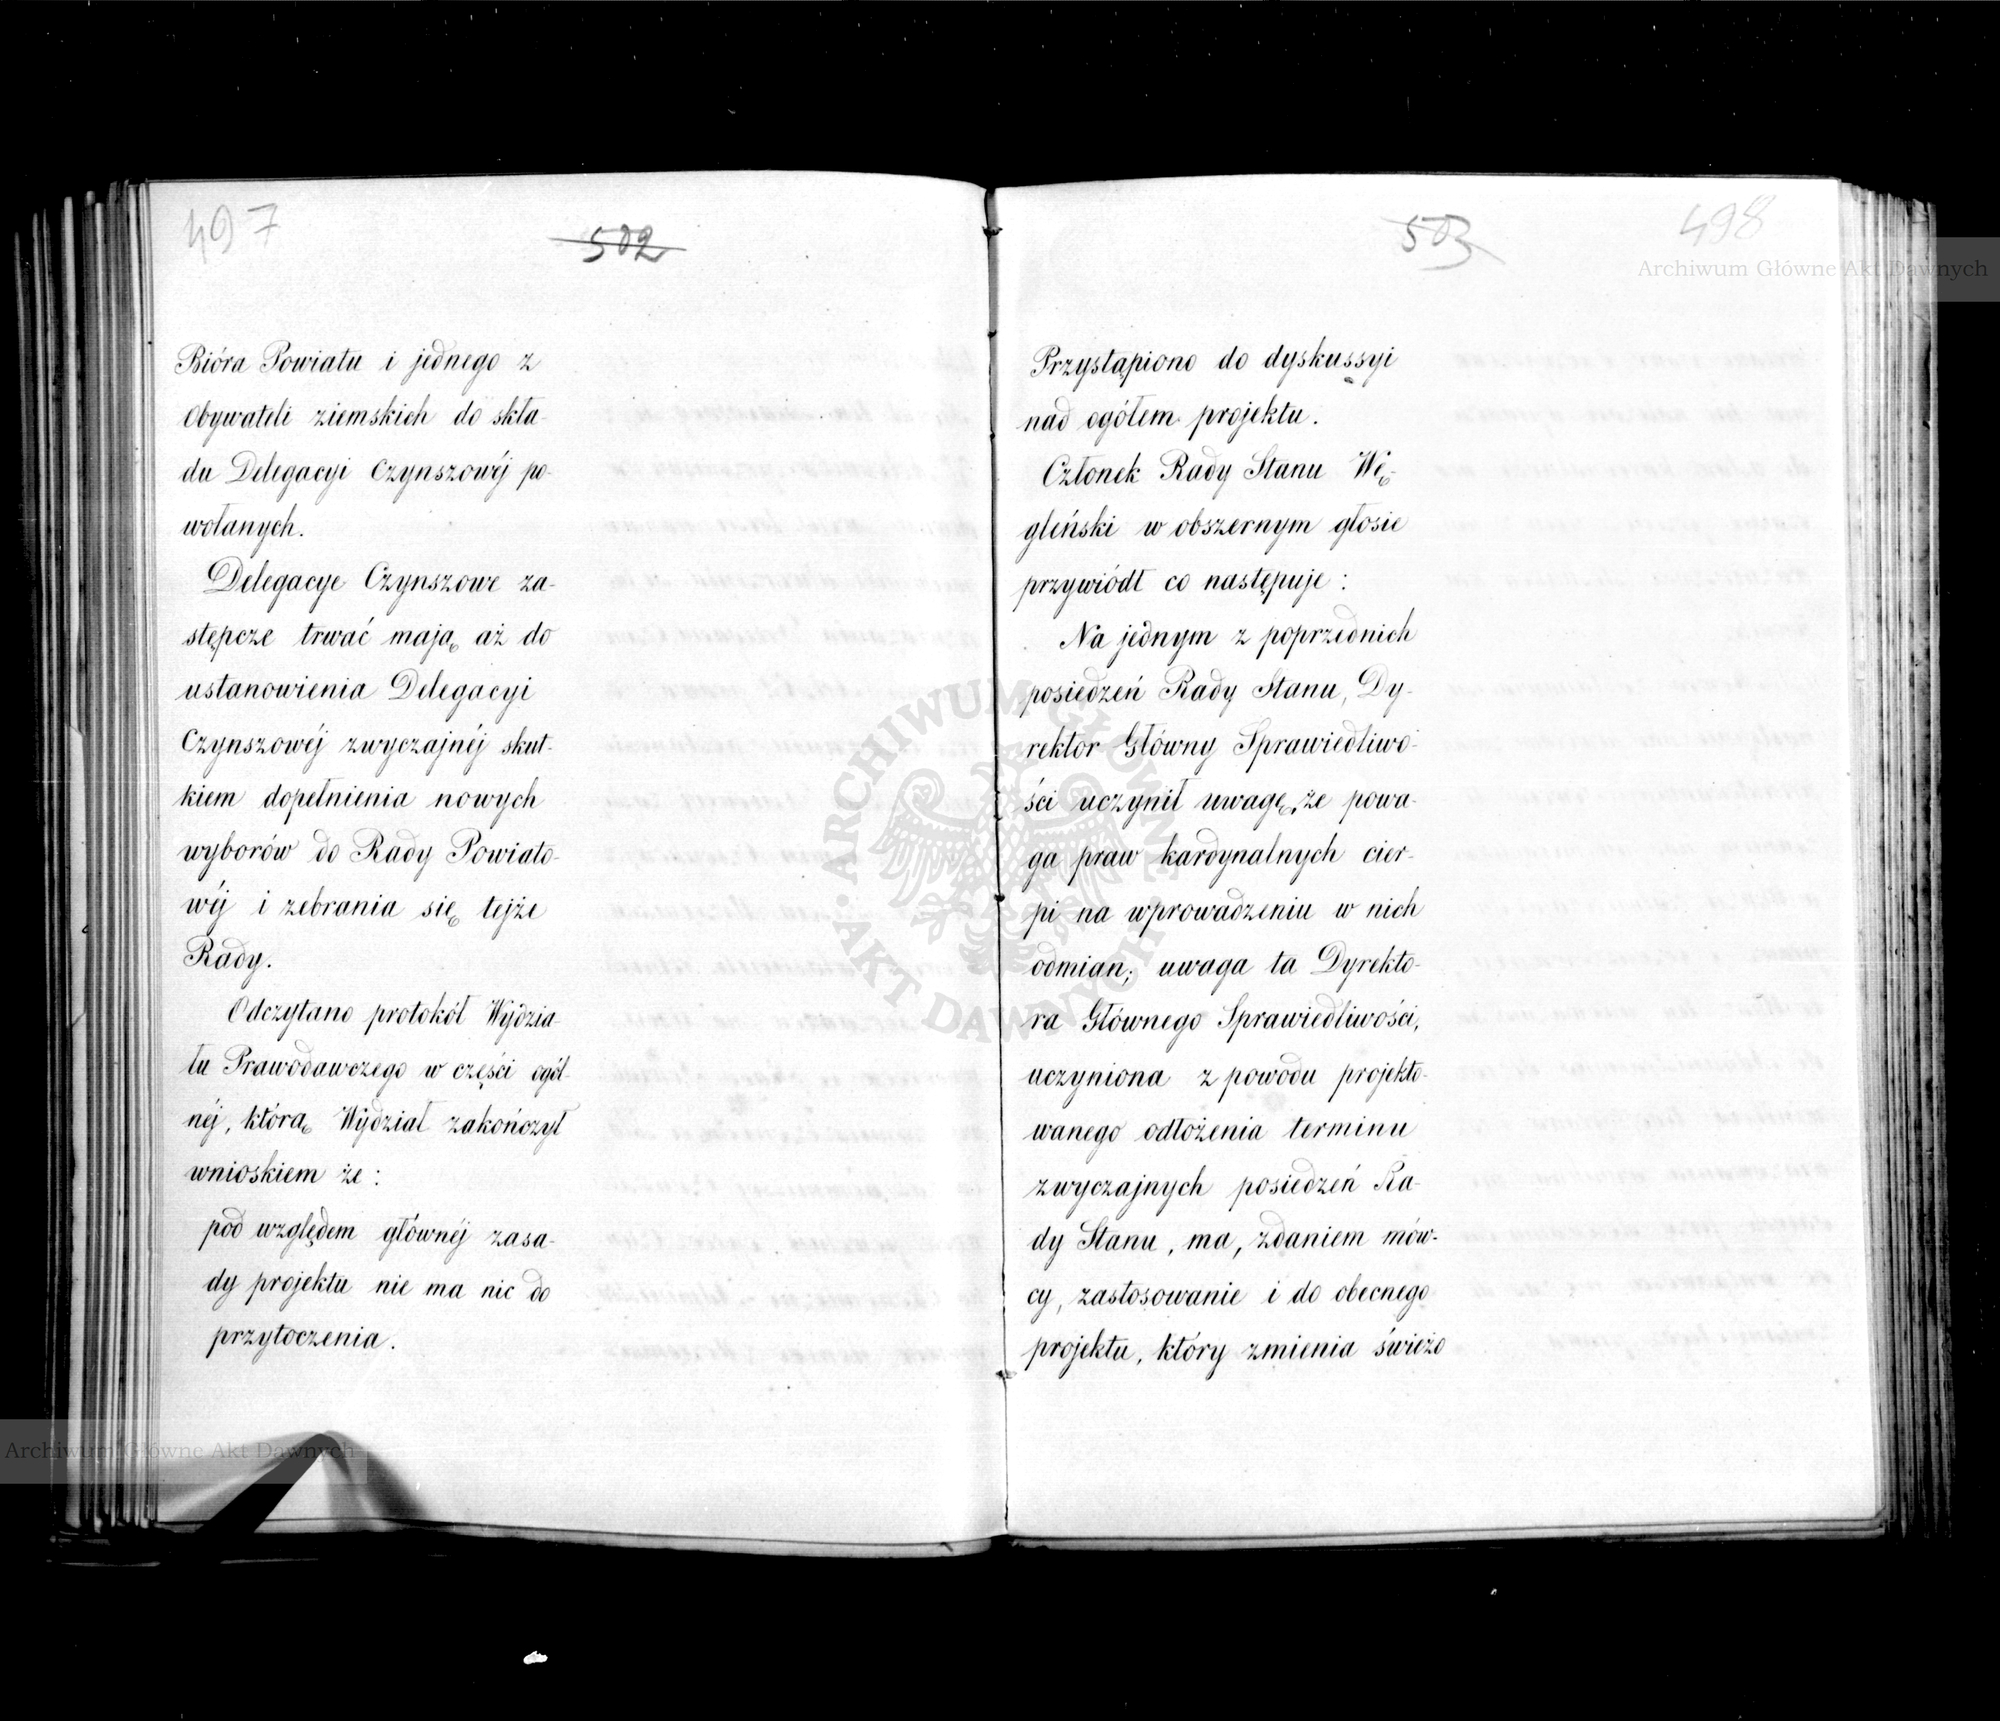 497
502
Bióra Powiatu i jednego z
Obywateli ziemskich do skła-
du Delegacyi Czynszowéj po-
wołanych.
Delegacye Czynszowe za-
stępcze trwać mają aż do
ustanowienia Delegacyi
Czynszowéj zwyczajnéj skut-
kiem dopełnienia nowych
wyborów do Rady Powiato-
wéj i zebrania się tejże
Rady.
Odczytano protokół Wydzia-
łu Prawodawczego w części ogól-
néj, którą Wydział zakończył
wnioskiem że:
pod względem głównéj zasa-
dy projektu nie ma nic do
przytoczenia.
503
498
Przystąpiono do dyskussyi
nad ogółem projektu.
Członek Rady Stanu Wę-
gleński w obszernym głosie
przywiódł co następuje:
Na jednym z poprzednich
posiedzeń Rady Stanu, Dy-
rektor Główny Sprawiedliwo-
ści uczynił uwagę, że powa-
ga praw kardynalnych cier-
pi na wprowadzeniu w nich
odmian; uwaga ta Dyrekto-
ra Głównego Sprawiedliwości,
uczyniona z powodu projekto-
wanego odłożenia terminu
zwyczajnych posiedzeń Ra-
dy Stanu, ma, zdaniem mów-
cy, zastosowanie i do obecnego
projektu, który zmienia świeżo
Archiwum Główne Akt Dawnych
Archiwum Główne Akt Dawnych
ARCHIWUM GŁÓWNE AKT DAWNYCH